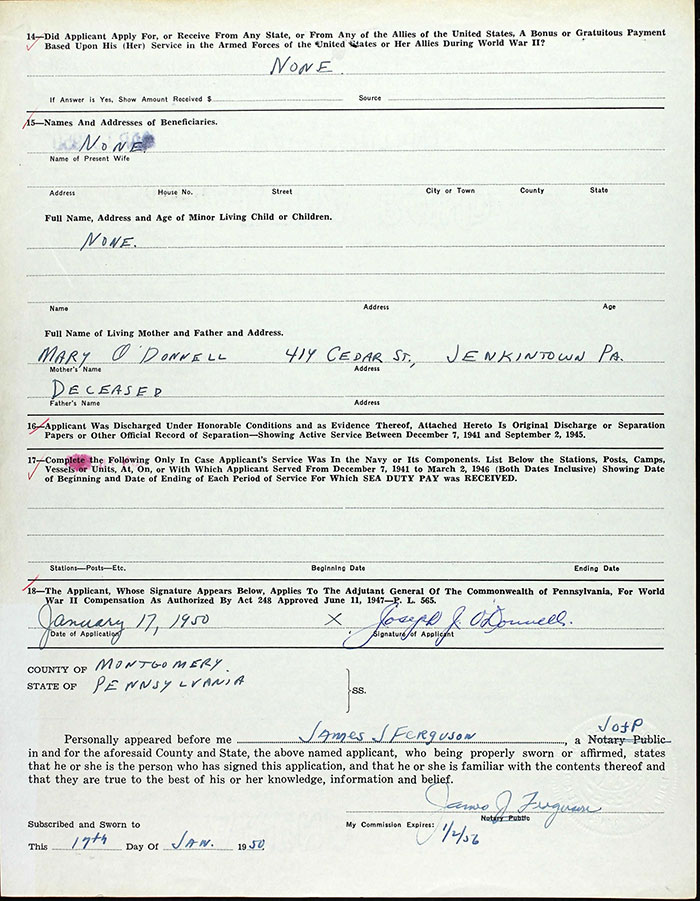 14—Did Applicant Apply For, or Receive From Any State, or From Any of the Allies of the United States, A Bonus or Gratuitous Payment
Based Upon His (Her) Service in the Armed Forces of the United States or Her Allies During World War II?
NONE.
If Answer is Yes, Show Amount Received $ Source
15—Names And Addresses of Beneficiaries.
NONE.
Name of Present Wife
Address House No. Street City or Town County State
Full Name, Address and Age of Minor Living Child or Children.
NONE.
Name Address Age
Full Name of Living Mother and Father and Address.
MARY O'DONNELL 414 CEDAR ST., JENKINTOWN PA.
Mother's Name Address
DECEASED
Father's Name Address
16—Applicant Was Discharged Under Honorable Conditions and as Evidence Thereof, Attached Hereto Is Original Discharge or Separation
Papers or Other Official Record of Separation—Showing Active Service Between December 7, 1941 and September 2, 1945.
17—Complete the Following Only In Case Applicant's Service Was In the Navy or Its Components. List Below the Stations, Posts, Camps,
Vessels or Units, At, On, or With Which Applicant Served From December 7, 1941 to March 2, 1946 (Both Dates Inclusive) Showing Date
of Beginning and Date of Ending of Each Period of Service For Which SEA DUTY PAY was RECEIVED.
Stations—Posts—Etc. Beginning Date Ending Date
18—The Applicant, Whose Signature Appears Below, Applies To The Adjutant General Of The Commonwealth of Pennsylvania, For World
War II Compensation As Authorized By Act 248 Approved June 11, 1947—P. L. 565.
January 17, 1950 X Joseph J. O'Donnell.
Date of Application Signature of Applicant
COUNTY OF MONTGOMERY.
STATE OF PENNSYLVANIA
SS.
J of P
Personally appeared before me JAMES J FERGUSON, a Notary Public
in and for the aforesaid County and State, the above named applicant, who being properly sworn or affirmed, states
that he or she is the person who has signed this application, and that he or she is familiar with the contents thereof and
that they are true to the best of his or her knowledge, information and belief.
James J. Ferguson
Notary Public
Subscribed and Sworn to My Commission Expires: 1/2/56
This 17th Day Of JAN. 1950.